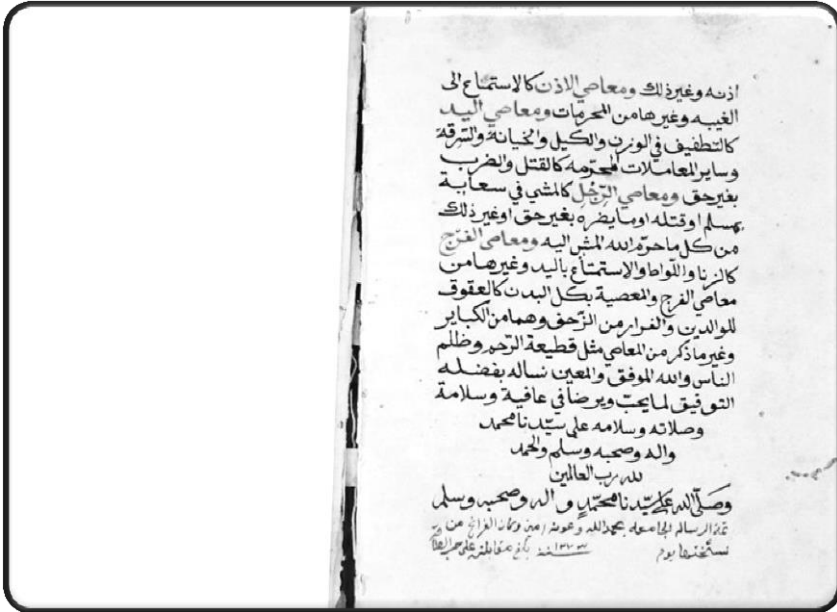 اذنه وغير ذلك ومعاصي الاذن كالاستماع الى
الغيبه وغيرها من المحرمات ومعاصي اليد
كالتطفيف في الوزن والكيل والخيانة والسرقة
وساير المعاملات المحرّمه كالقتل والضرب
بغير حق ومعاصي الرّجْلِ كالمشي في سعاية
بمسلم او قتله او ما يضره بغير حق او غير ذلك
من كل ما حرّم الله المشي اليه ومعاصي الفرج
كالزنا واللواط والاستمتاع باليد وغيرها من
معاصي الفرج والمعصية بكل البدن كالعقوق
للوالدين والفرار من الزّحف وهما من الكباير
وغير ما ذكر من المعاصي مثل قطيعة الرّحم وظلم
الناس والله الموفق والمعين نساله بفضله
التوفيق لما يحبّ ويرضا في عافية وسلامة
وصلاته وسلامه على سيّدنا محمد
واله وصحبه وسلم والحمد
لله رب العالمين
وصلّى الله على سيّدنا محمّدٍ واله وصحبه وسلم
الرساله الجامعه بحمد الله وعونه امين وكان الفراغ من
يوم